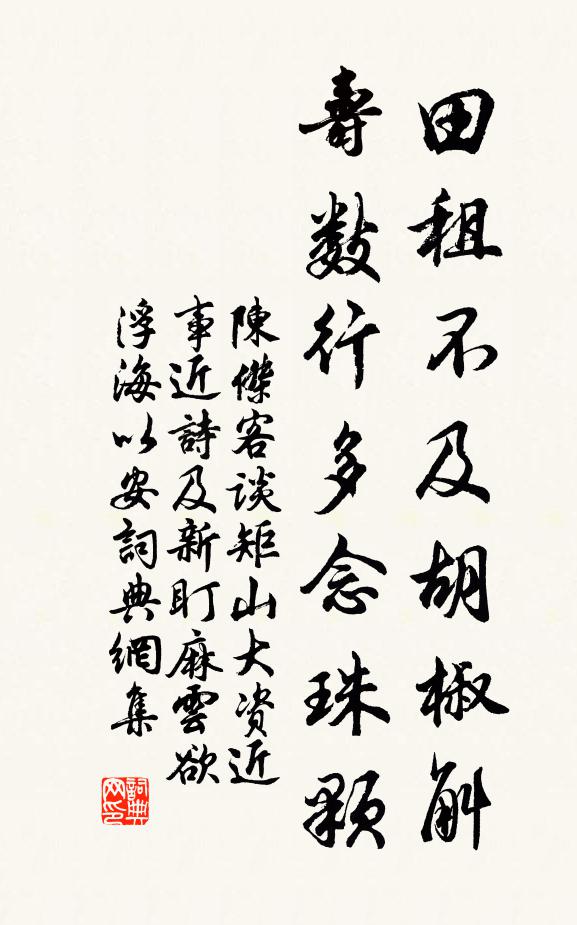 田租不及胡椒斛
壽數行多念珠顆
陳傑客談矩山大資近
事近詩及新盯麻雲欲
浮海以安詞典網集
詞典网印